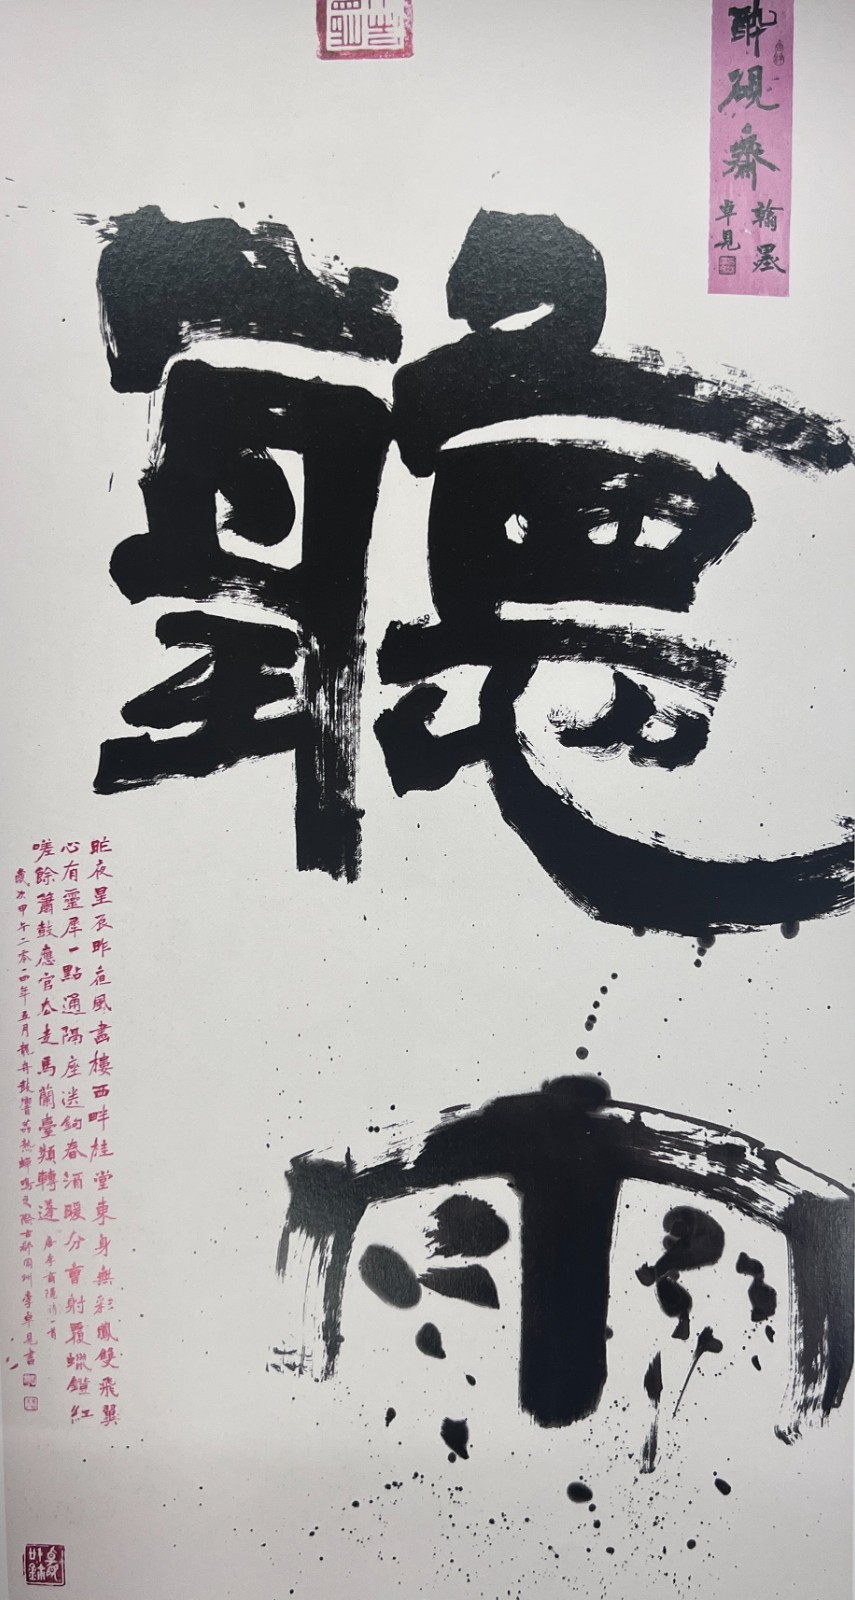 醉硯齋
翰墨
卓見
聽雨
昨夜星辰昨夜風畫樓西畔桂堂東身無彩鳳雙飛翼
心有靈犀一點通隔座送鈎春酒暖分曹射覆蠟燈紅
嗟餘聽鼓應官去走馬蘭臺類轉蓬
唐李商隱詩一首
歲次甲午二零一四年五月龍舟鼓響荔熟蟬鳴之際古郡
李卓見書